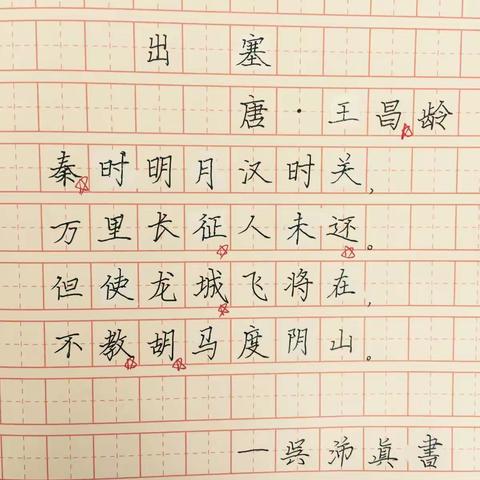 出塞
唐·王昌龄
秦时明月汉时关,
万里长征人未还。
但使龙城飞将在,
不教胡马度阴山。
一吴沛真書